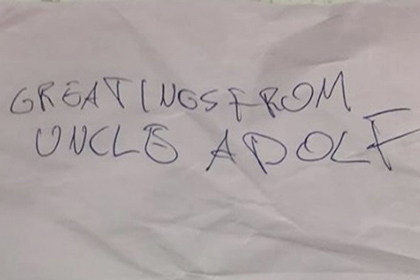 GREATINGS FROM
UNCLE ADOLF